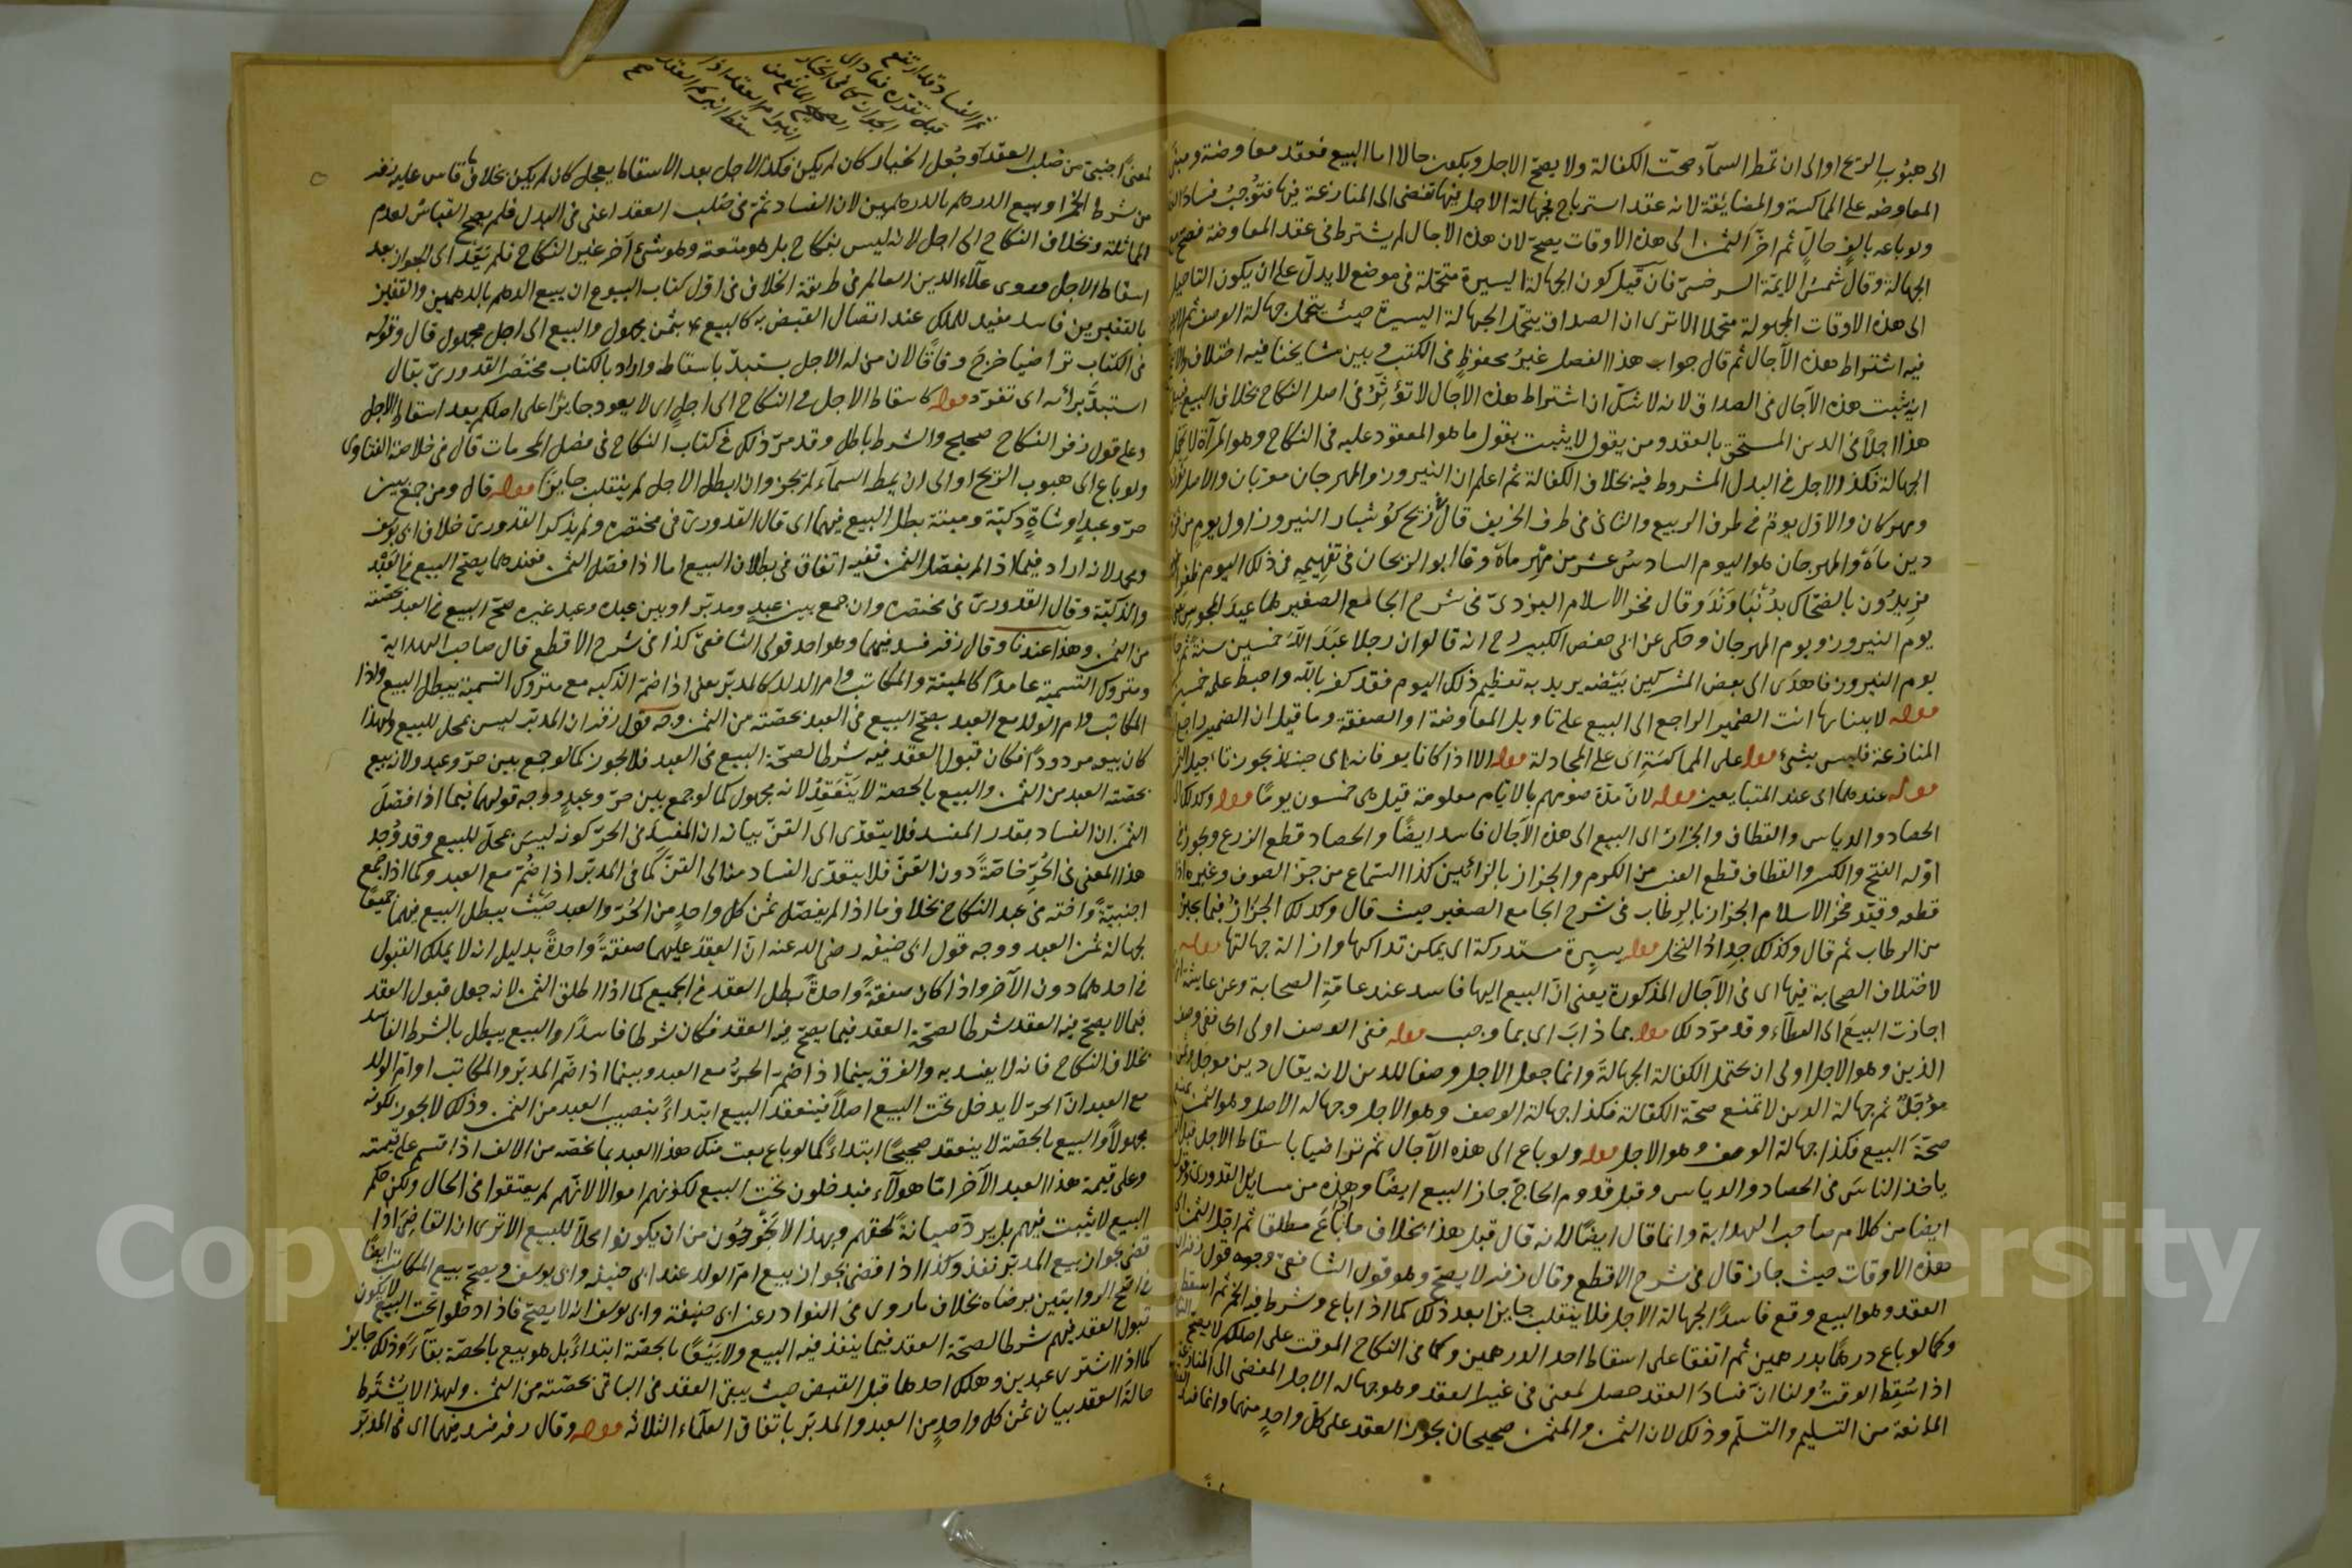 الى هبوب الريح او الى ان تمطر السمآء صحت الكفالة ولا يصح الاجل ويكون حالا اما البيع فعقد معاوضة ومبنى
المعاوضه على المماكسة والمضايقة لانه عقد استرباح فجهالة الاجل فيها تفضى الى المنازعة فيها فتوجب فساد
ولو باعه بالف حال ثم اخر الثمن الى هذه الاوقات يصح لان هذه الاجال لم يشترط فى عقد المعاوضة فصح
الجهالة وقال شمس الايمة السرخسى فان قيل كون الجهالة اليسيرة متحملة فى موضع لا يدل على ان يكون التاجيل
الى هذه الاوقات المجهولة متحملا الا ترى ان الصداق يتحمل الجهالة اليسيرة حيث يتحمل جهالة الوصف ثم
فيه اشتراط هذه الآجال ثم قال جواب هذا الفصل غير محفوظ فى الكتب وبين مشايخنا فيه اختلاف
انه يثبت هذه الآجال فى الصداق لانه لا شك ان اشتراط هذه الاجال لا تؤثر فى اصل النكاح بخلاف البيع
هذا اجلا فى الدين المستحق بالعقد ومن يقول لا يثبت يقول ما هو المعقود عليه فى النكاح وهو المرآة لا
الجهالة فكذا الاجل فى البدل المشروط فيه بخلاف الكفالة ثم اعلم ان النيروز والمهرجان معربان والاصل
ومهركان والاول يوم فى طرف الربيع والثانى فى طرف الخريف قال فى زيج كوشيار النيروز اول يوم من
دين ماه والمهرجان هو اليوم السادس عشر من مهر ماه وقال ابو الريحان فى تفهيمه فى ذلك اليوم ظفر
فريدون بالضحاك بدنباوند وقال فخر الاسلام البزدوى فى شرح الجامع الصغير هما عيد المجوس
يوم النيروز ويوم المهرجان وحكى عن ابى حفص الكبير رح انه قال لو ان رجلا عبد الله خمسين سنة ثم
يوم النيروز فاهدى الى بعض المشركين بيضه يريد به تعظيم ذلك اليوم فقد كفر بالله واحبط عمله خمسين
قوله لابتنايها انث الضمير الراجع الى البيع على تاويل المعاوضة او الصفقة وما قيل ان الضمير راجع
المنازعة فليس بشئ قوله على المماكسة اى على المجادلة قوله الا اذا كانا يعرفانه اى حينئذ يجوز تاجيل
قوله عندهما اى عند المتبايعين قوله لان مدة صومهم بالايام معلومة قيل هى خمسون يوما قوله وكذلك
الحصاد والدياس والقطاف والجزاز اى البيع الى هذه الآجال فاسد ايضا والحصاد قطع الزرع ويجوز
اوله الفتح والكسر والقطاف قطع العنب من الكروم والجزاز بالزائين كذا السماع من جز الصوف وغيره اذا
قطعه وقيد فخر الاسلام الجزاز بالرطاب فى شرح الجامع الصغير حيث قال وكذلك الجزاز فيما يجز
من الرطاب ثم قال وكذلك جداد النخل قوله يسيرة مستدركة اى يمكن تداركها وازالة جهالتها قوله
لاختلاف الصحابة فيها اى فى الآجال المذكورة يعنى ان البيع اليها فاسد عند عامة الصحابة وعن عايشة
اجازت البيع الى العطآء وقد مر ذلك قوله بما ذاب اى بما وجب قوله ففى الوصف اولى اى ففى وصف
الدين وهو الاجل اولى ان يحتمل الكفالة الجهالة وانما جعل الاجل وصفا للدين لانه يقال دين موجل
مؤجل ثم جهالة الدين لا تمنع صحة الكفالة فكذا جهالة الوصف وهو الاجل وجهاله الاصل وهو الثمن
صحة البيع فكذا جهالة الوصف وهو الاجل قوله ولو باع الى هذه الآجال ثم تراضيا باسقاط الاجل قبل ان
ياخذ الناس فى الحصاد والدياس وقبل قدوم الحاج جاز البيع ايضا وهذه من مسايل القدورى
ايضا من كلام صاحب الهداية وانما قال ايضا لانه قال قبل هذا بخلاف ما اذا باع مطلقا ثم اجل الثمن الى
هذه الاوقات حيث جاز قال فى شرح الاقطع وقال زفر لا يصح وهو قول الشافعى وجه قول زفر
العقد وهو البيع وقع فاسدا لجهالة الاجل فلا ينقلب جايزا بعد ذلك كما اذا باع وشرط فيه الخمر ثم اسقط
وكما لو باع درهما بدرهمين ثم اتفقا على اسقاط احد الدرهمين وكما فى النكاح الموقت على اصلكم لا يصح
اذا اسقط الوقت ولنا ان فساد العقد حصل لمعنى فى غير العقد وهو جهاله الاجل المفضى الى المنازعة
المانعة من التسليم والتسلم وذلك لان الثمن والمثمن صحيحان يجوز العقد على كل واحد منهما وانما
ثم الفساد قد ارتفع
قبل تقرره فعاد الى
الجواز كما فى الخيار
لمعنى اجنبى من صلب العقد وجعل الخيار كان لم يكن فكذا الاجل بعد الاسقاط يجعل كان لم يكن بخلاف ما قاس عليه زفر
من شرط الخمر او بيع الدرهم بالدرهمين لان الفساد ثمه فى صلب العقد اعنى فى البدل فلم يصح القياس لعدم
المماثلة وبخلاف النكاح الى اجل لانه ليس بنكاح بل هو متعة وهو شئ آخر غير النكاح فلم يعد الى الجواز بعد
اسقاط الاجل وروى علآء الدين العالم فى طريقة الخلاف فى اول كتاب البيوع ان بيع الدرهم بالدرهمين والقفيز
بالقفيزين فاسد مفيد للملك عند اتصال القبض به كالبيع بثمن مجهول والبيع الى اجل مجهول قال وقوله
فى الكتاب تراضيا خرج وفاقا لان من له الاجل يستبد باسقاطه واراد بالكتاب مختصر القدورى يقال
استبد برائه اى تفرد قوله كاسقاط الاجل فى النكاح الى اجل اى لا يعود جايزا على اصلكم بعد اسقاط الاجل
وعلى قول زفر النكاح صحيح والشرط باطل وقد مر ذلك فى كتاب النكاح فى فصل المحرمات قال فى خلاصة الفتاوى
ولو باع الى هبوب الريح او الى ان يمطر السمآء لم تجز وان ابطل الاجل لم ينقلب جايزا قوله قال ومن جمع بين
حر وعبد او شاة ذكية وميتة بطل البيع فيهما اى قال القدورى فى مختصره ولم يذكر القدورى خلاف ابى يوسف
ومحمد لانه اراد فيما اذا لم يفصل الثمن ففيه اتفاق فى بطلان البيع اما اذا فصل الثمن فعندهما يصح البيع فى العبد
والذكية وقال القدورى فى مختصره وان جمع بين عبد ومدبر او بين عبده وعبد غيره صح البيع فى العبد بحصته
من الثمن وهذا عندنا وقال زفر فسد فيهما وهو احد قولى الشافعى كذا فى شرح الاقطع قال صاحب الهداية
ومتروك التسمية عامدا كالميتة والمكاتب وام الولد كالمدبر يعنى اذا ضم الذكيه مع متروك التسمية يبطل البيع واذا
المكاتب وام الولد مع العبد يصح البيع فى العبد بحصته من الثمن وجه قول زفر ان المدبر ليس بمحل للبيع ولهذا
كان بيعه مردودا فكان قبول العقد فيه شرطا لصحة البيع فى العبد فلا يجوز كما لو جمع بين حر وعبد ولانه بيع
بحصته العبد من الثمن والبيع بالحصة لا ينعقد لانه مجهول كما لو جمع بين حر وعبد ووجه قولهما فيما اذا فصل
الثمن ان الفساد بقدر المفسد فلا يتعدى الى القن بيانه ان المفسد فى الحر كونه ليس بمحل للبيع وقد وجد
هذا المعنى فى الحر خاصة دون القن فلا يتعدى الفساد منه الى القن كما فى المدبر اذا ضم مع العبد وكما اذا جمع
اجنبية واخته فى عقد النكاح بخلاف ما اذا لم يفصل ثمن كل واحد من الحر والعبد حيث يبطل البيع فيهما جميعا
لجهالة ثمن العبد ووجه قول ابى حنيفه رضى الله عنه ان العقد عليهما صفقة واحدة بدليل انه لا يملك القبول
فى احدهما دون الآخر واذا كان صفقة واحدة بطل العقد فى الجميع كما اذا اطلق الثمن لانه جعل قبول العقد
فيما لا يصح فيه العقد شرطا لصحة العقد فيما يصح فيه العقد فكان شرطا فاسدا والبيع يبطل بالشرط الفاسد
بخلاف النكاح فانه لا يفسد به والفرق بينما اذا ضم الحر مع العبد وبينما اذا ضم المدبر والمكاتب او ام الولد
مع العبد ان الحر لا يدخل تحت البيع اصلا فينعقد البيع ابتداء بنصيب العبد من الثمن وذلك لا يجوز لكونه
مجهولا والبيع بالحصة لا ينعقد صحيحا ابتداء كما لو باع بعت منك هذا العبد بما يخصه من الالف اذا قسم على قيمته
وعلى قيمة هذا العبد الآخر اما هولآء فيدخلون تحت البيع لكونهم اموالا لانهم لم يعتقوا فى الحال ولكن حكم
البيع لا يثبت فيهم بل يرد صيانة لحقهم وبهذا لا يخرجون من ان يكونوا محلا للبيع الا ترى ان القاضى اذا
قضى بجواز بيع المدبر نفذ وكذا اذا قضى بجواز بيع ام الولد عند ابى حنيفه وابى يوسف ويصح بيع المكاتب ايضا
فى اصح الروايتين برضاه بخلاف ما روى فى النوادر عن ابى حنيفة وابى يوسف انه لا يصح فاذا ادخلوا تحت البيع لا يكون
قبول العقد فيهم شرطا لصحة العقد فيما ينفذ فيه البيع ولا بيعا بالحصة ابتداء بل هو بيع بالحصة بقآء وذلك جايز
كما اذا اشترى عبدين وهلك احدهما قبل القبض حيث يبقى العقد فى الباقى بحصته من الثمن ولهذا لا يشترط
حالة العقد بيان ثمن كل واحد من العبد والمدبر باتفاق العلمآء الثلاثه قوله وقال زفر فسد فيهما اى فى المدبر
Copyright © King Saud University